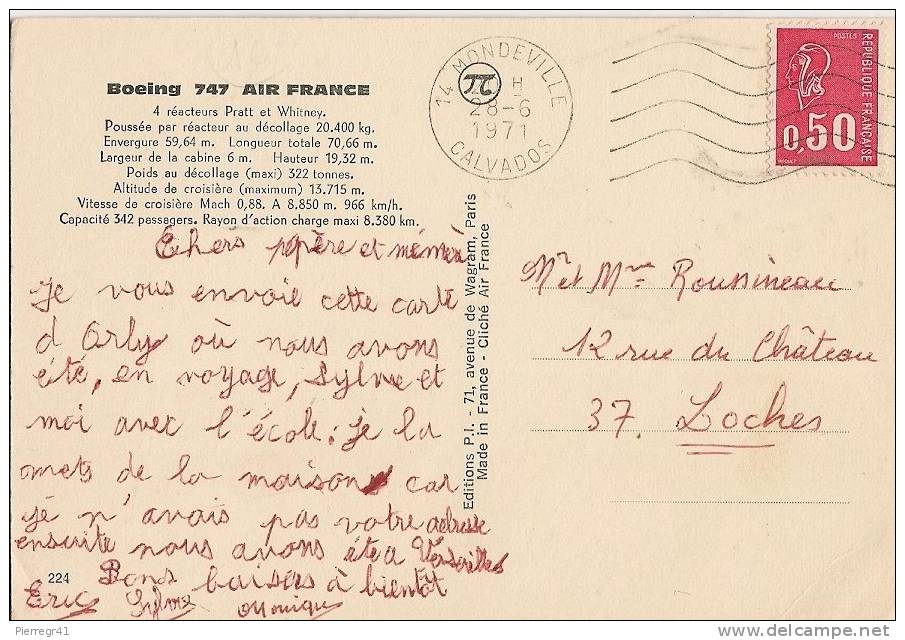 Boeing 747 AIR FRANCE
4 réacteurs Pratt et Whitney.
Poussée par réacteur au décollage 20.400 kg.
Envergure 59,64 m. Longueur totale 70,66 m.
Largeur de la cabine 6 m. Hauteur 19,32 m.
Poids au décollage (maxi) 322 tonnes.
Altitude de croisière (maximum) 13.715 m.
Vitesse de croisière Mach 0,88. A 8.850 m. 966 km/h.
Capacité 342 passagers. Rayon d'action charge maxi 8.380 km.
Chers pépère et mémère
Je vous envoie cette carte
d Orly où nous avons
été, en voyage, Sylvie et
moi avec l'école. je la
mets de la maison car
je n'avais pas votre adresse
ensuite nous avons été a Versailles
Bons baisers à bientôt
Eric Sylvie Monique
224
Editions P.I. - 71, avenue de Wagram, Paris
Made in France - Cliché Air France
14 MONDEVILLE
H
28-6
1971
CALVADOS
POSTES
REPUBLIQUE FRANÇAISE
0,50
Mr et Mme Roussineau
12 rue du Château
37 Loches
Pierregr41
www.delcampe.net